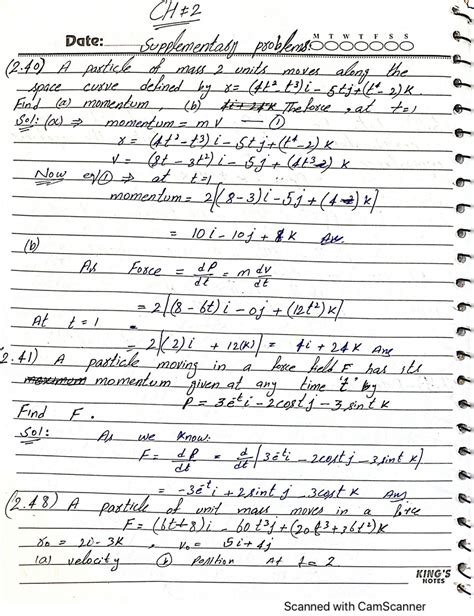 CH#2
Date: Supplementary problems M T W T F S S
(2.40) A particle of mass 2 units moves along the
space curve defined by r = (4t² - t³)i - 5tj + (t⁴ - 2)k.
Find (a) momentum, (b) The force, at t=1
Sol: (a) ⇒ momentum = m v — ①
r = (4t² - t³)i - 5tj + (t⁴ - 2)k
v = (8t - 3t²)i - 5j + (4t³)k
Now eq ① ⇒ at t=1
momentum = 2[(8-3)i - 5j + (4)k]
= 10i - 10j + 8k Ans.
(b)
As Force = dP/dt = m dv/dt
= 2[(8-6t)i - 0j + (12t²)k]
At t = 1
= 2[(2)i + 12(k)] = 4i + 24k Ans
2.41) A particle moving in a force field F has its
momentum given at any time "t" by
P = 3e⁻ᵗi - 2costj - 3sintk
Find F.
Sol: As we know:
F = dP/dt = d/dt [3e⁻ᵗi - 2costj - 3sintk]
= -3e⁻ᵗi + 2sintj - 3costk Ans
(2.48) A particle of unit mass moves in a force
F = (6t+8)i - 60t³j + (20t³+36t²)k
r₀ = 2i - 3k, v₀ = 5i + 4j
(a) velocity (b) position At t = 2
KING'S
NOTES
Scanned with CamScanner